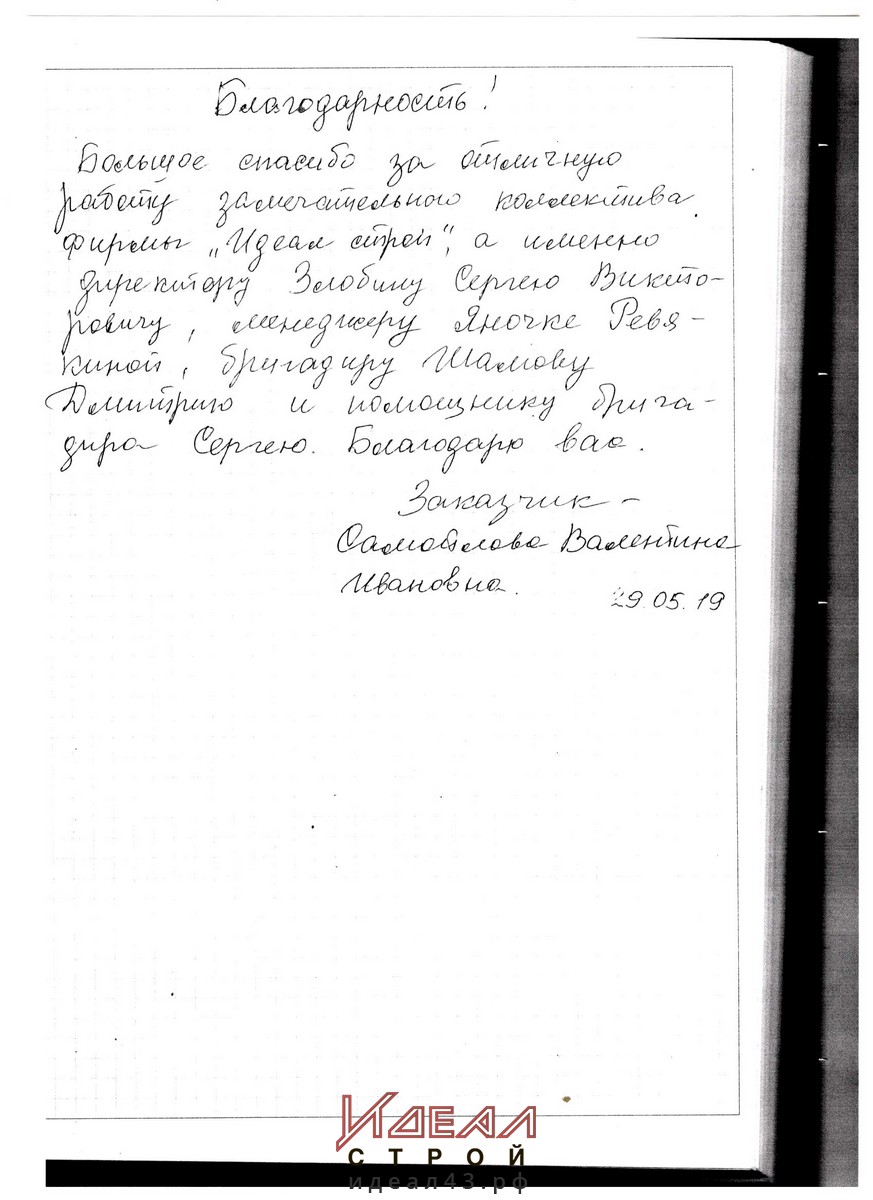 Благодарность!
Большое спасибо за отличную
работу замечательного коллектива
фирмы „Идеал строй", а именно
директору Злобину Сергею Викто-
ровичу, менеджеру Яночке Ревя-
киной, бригадиру Шамову
Дмитрию и помощнику брига-
дира Сергею. Благодарю вас.
Заказчик -
Самойлова Валентина
Ивановна.
29.05.19
ИДЕАЛ
СТРОЙ
идеал43.рф